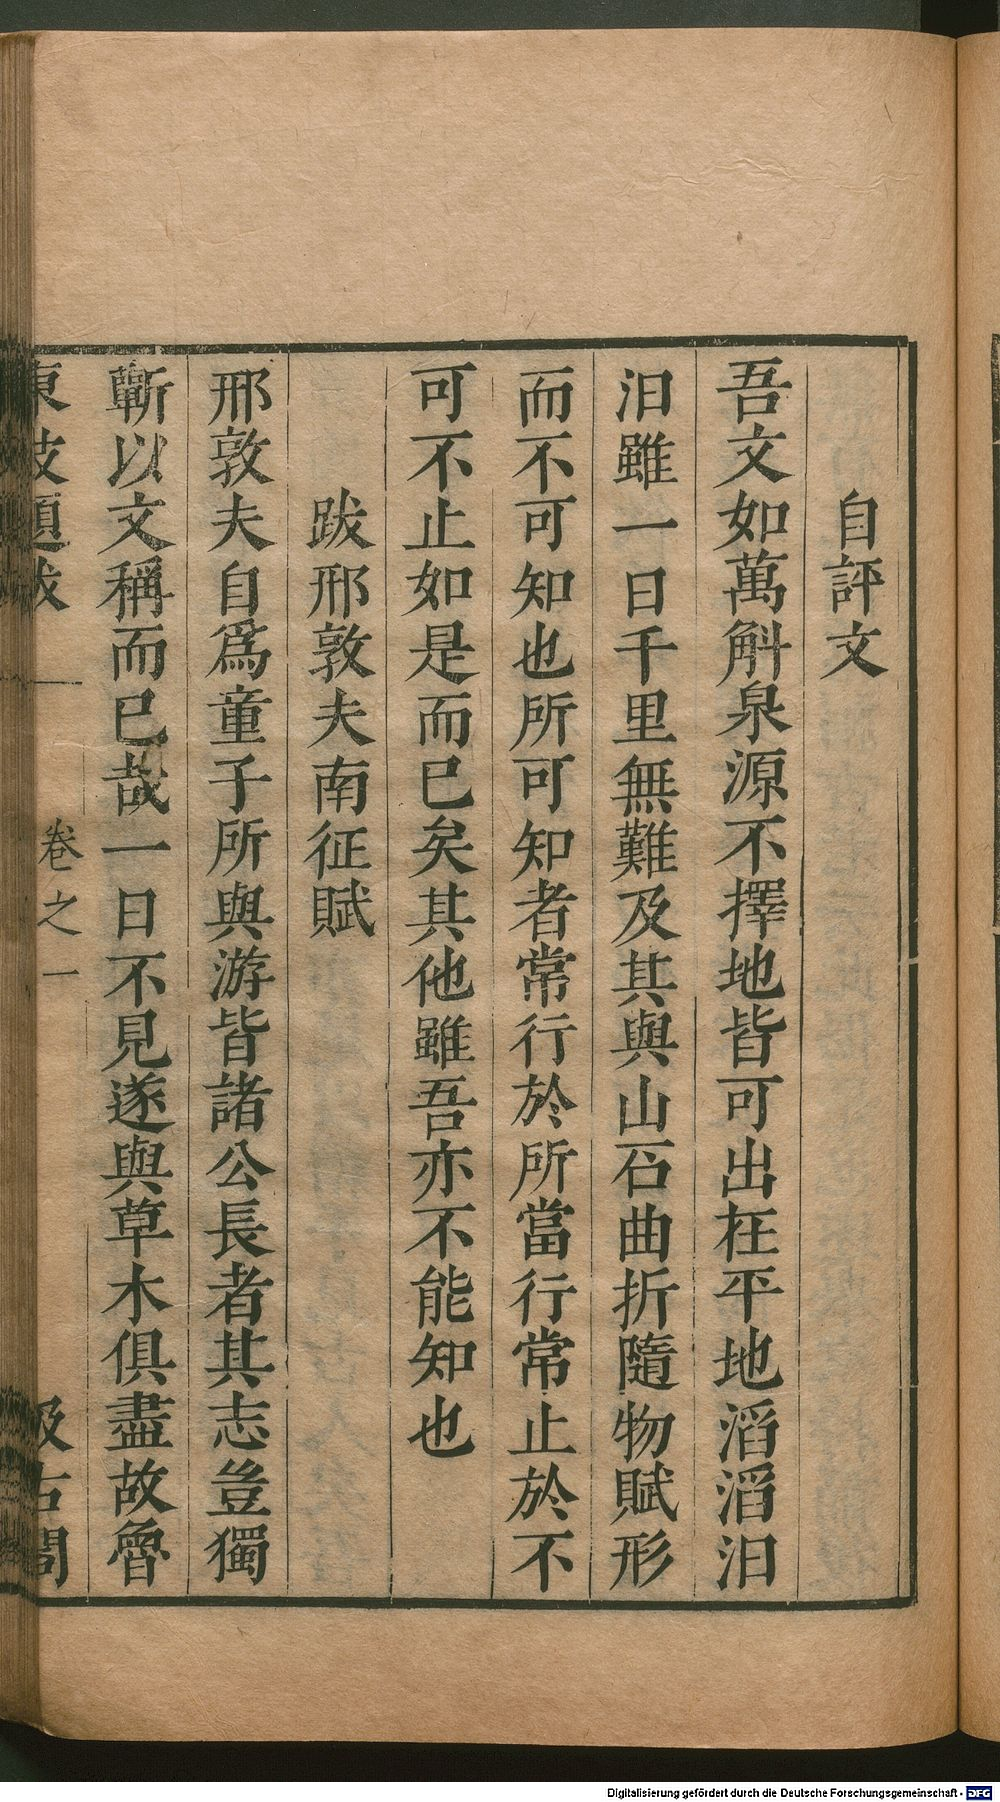 自評文
吾文如萬斛泉源不擇地皆可出在平地滔滔汩
汩雖一日千里無難及其與山石曲折隨物賦形
而不可知也所可知者常行於所當行常止於不
可不止如是而已矣其他雖吾亦不能知也
跋邢敦夫南征賦
邢敦夫自爲童子所與游皆諸公長者其志豈獨
蘄以文稱而已哉一日不見遂與草木俱盡故魯
東坡題跋 卷之一 汲古閣
Digitalisierung gefördert durch die Deutsche Forschungsgemeinschaft - DFG